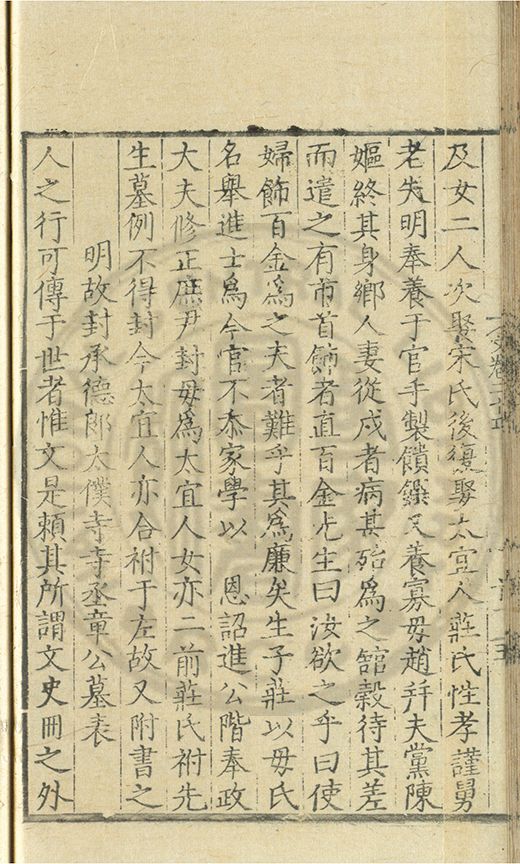 及女二人次娶宋氏後復娶太宜人莊氏性孝謹舅
老失明奉養于官手製饋饌又養寡母趙幷夫黨陳
嫗終其身鄉人妻從戍者病甚殆爲之舘穀待其差
而遣之有市首飾者直百金先生曰汝欲之乎曰使
婦飾百金爲之夫者難乎其爲廉矣生子莊以毋氏
名舉進士爲今官不忝家學以 恩詔進公階奉政
大夫修正庶尹封毋爲太宜人女亦二前莊氏祔先
生墓例不得封今太宜人亦合祔于左故又附書之
明故封承德郎太僕寺寺丞章公墓表
人之行可傳于世者惟文是頼其所謂文史冊之外